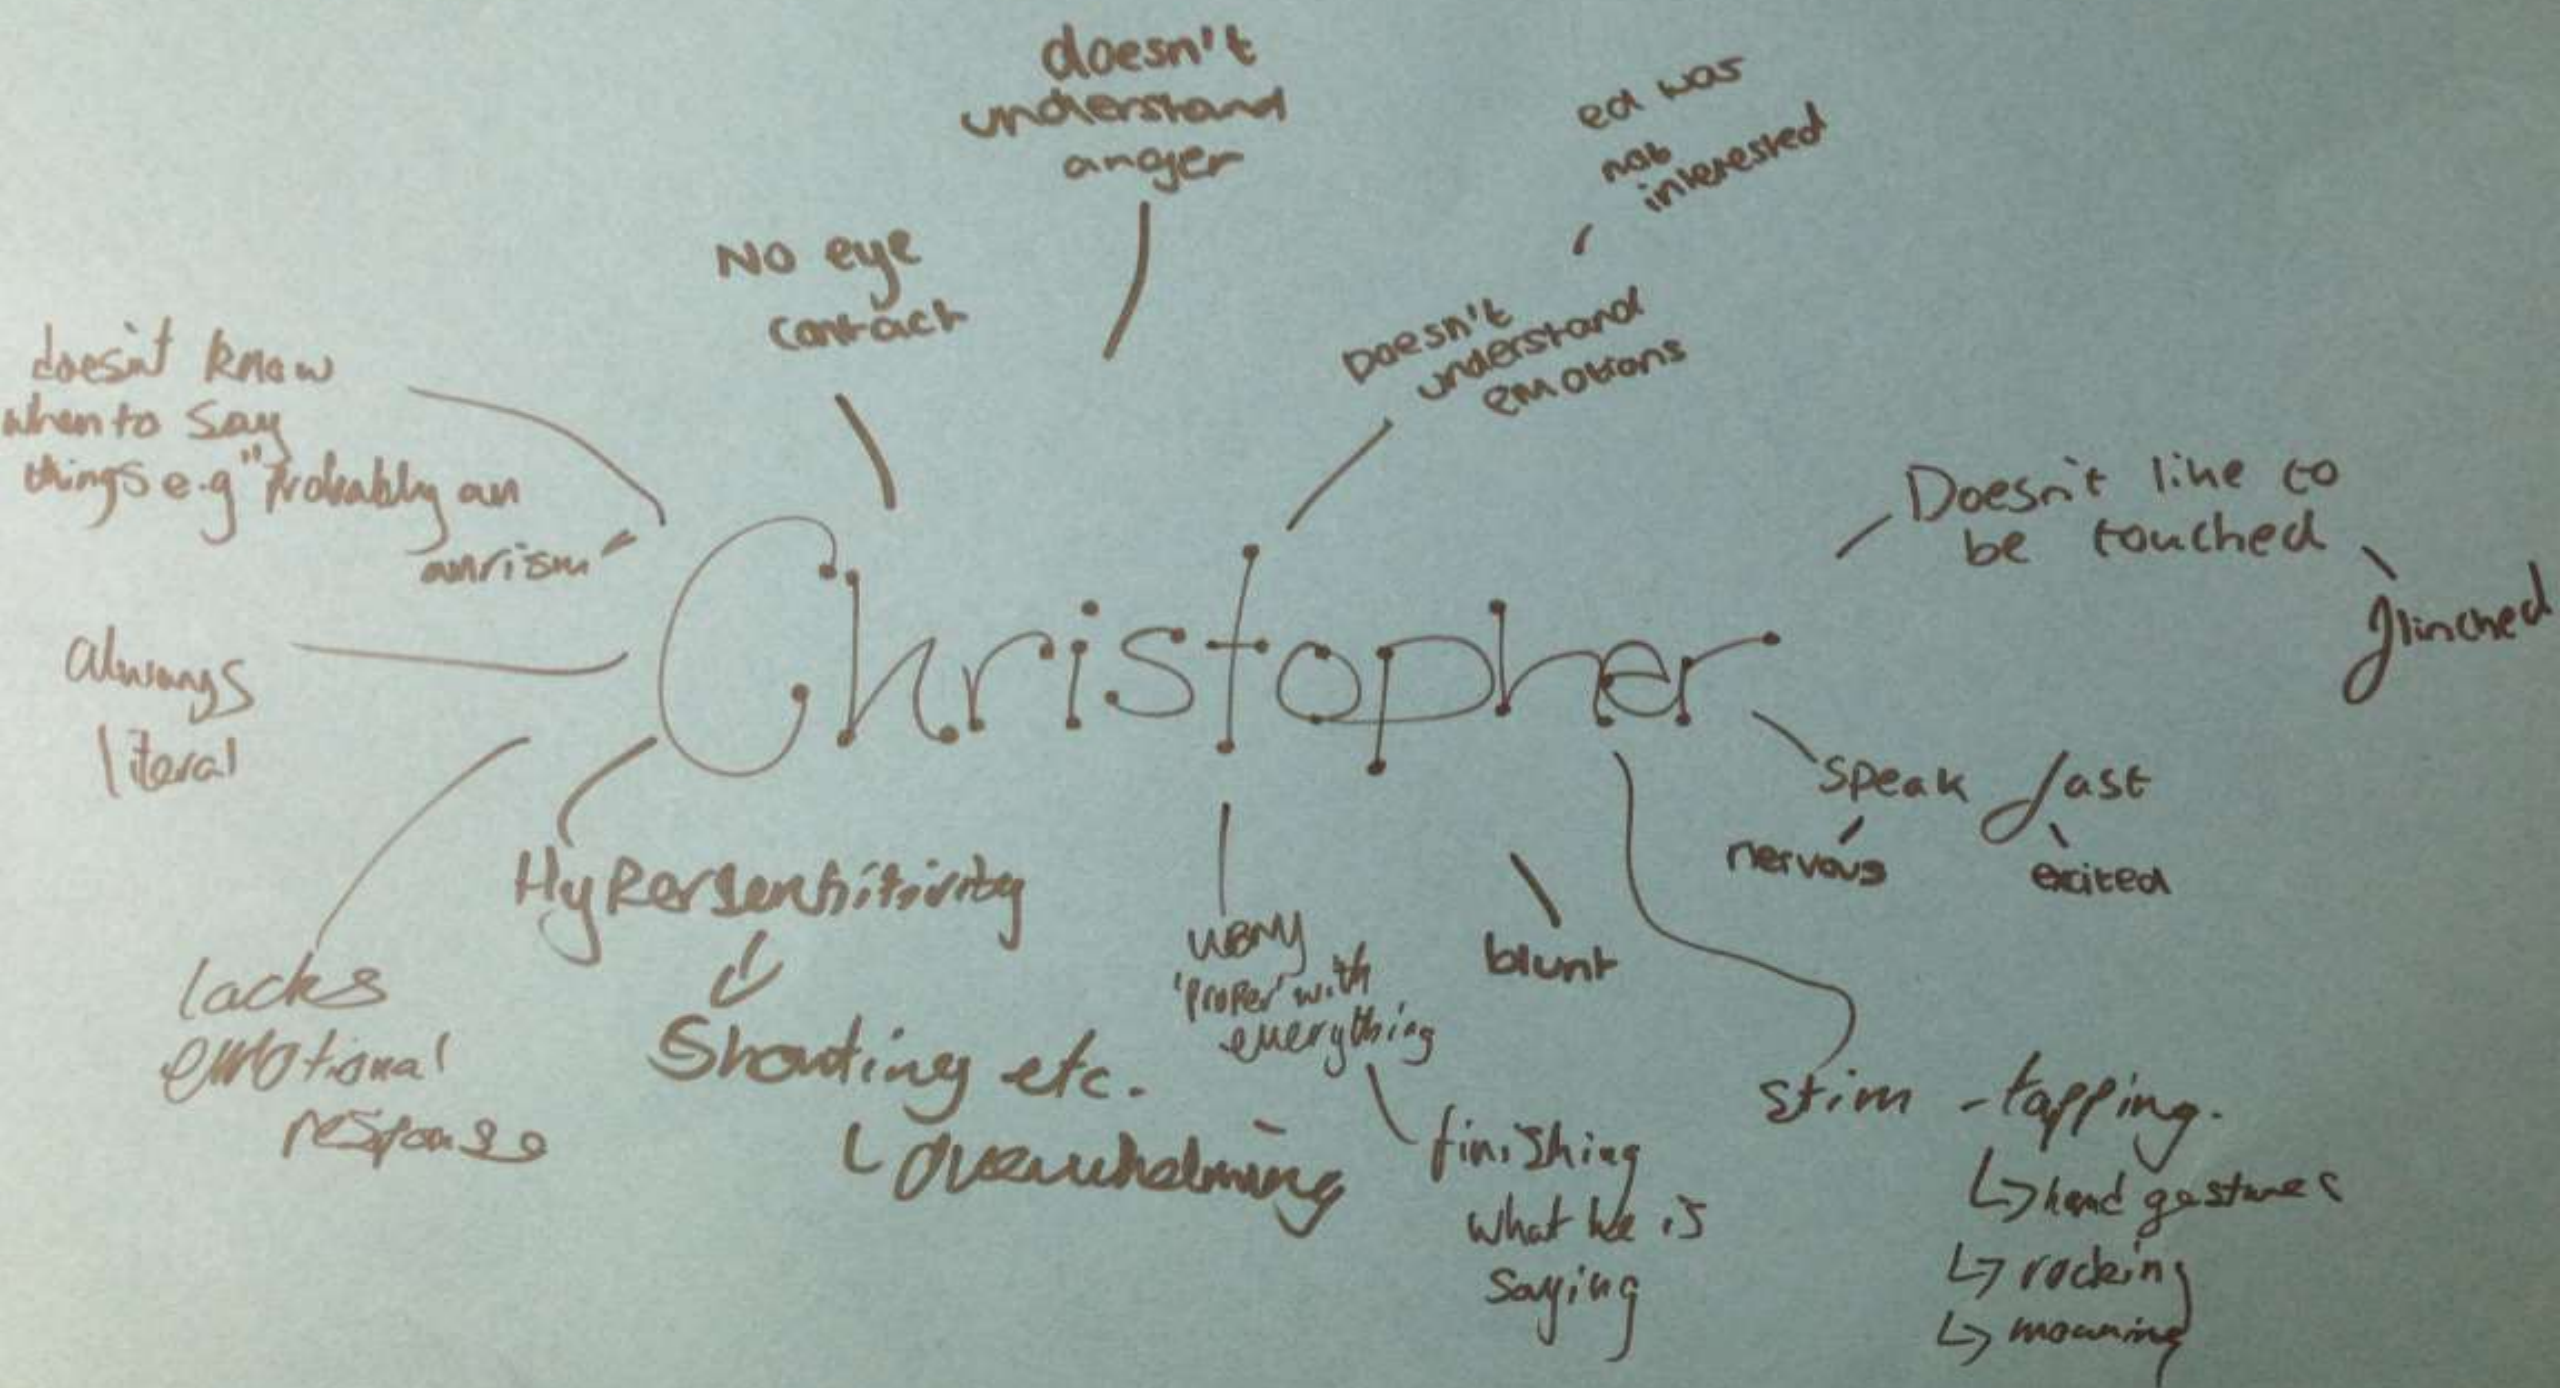 doesn't
understand
anger
ed was
not
interested
No eye
contact
Doesn't
understand
emotions
doesn't know
when to say
things e.g "Probably an
anrism"
Christopher
Doesn't like to
be touched
flinched
always
literal
speak fast
nervous
exited
Hypersensitivity
Shouting etc.
overwhelming
lacks
emotional
response
'proper' with
everything
finishing
what he is
saying
blunt
stim - tapping.
hand gestures
rocking
moaning